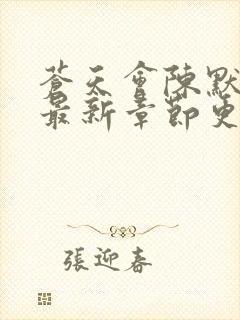 蒼天會陳默
最新章節更
張迎春